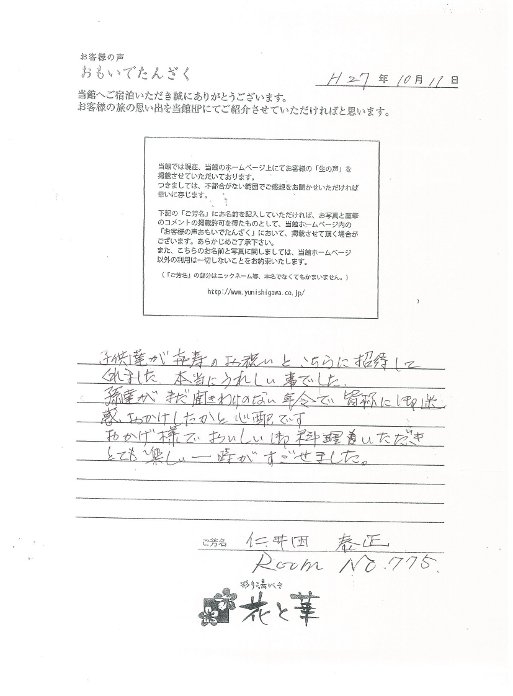 お客様の声
おもいでたんざく
H27年10月11日
当館へご宿泊いただき誠にありがとうございます。
お客様の旅の思い出を当館HPにてご紹介させていただければと思います。
当館では現在、当館のホームページ上にてお客様の「生の声」を
掲載させていただいております。
つきましては、不都合がない範囲でご感想をお聞かせいただければ
幸いに存じます。
下記の「ご芳名」にお名前を記入していただければ、お写真と直筆
のコメントの掲載許可を得たものとして、当館ホームページ内の
「お客様の声おもいでたんざく」において、掲載させて頂く場合が
ございます。あらかじめご了承下さい。
また、こちらのお名前と写真に関しましては、当館ホームページ
以外の利用は一切しないことをお約束いたします。
（「ご芳名」の部分はニックネーム等、本名でなくてもかまいません。）
http://www.yunishigawa.co.jp/
子供達が 寿のお祝いと こちらに招待して
くれました 本当にうれしい事でした。
孫達がまだ聞きわけのない年令で 皆様に御迷
惑おかけしたかと心配です
おかげ様で おいしい御料理をいただき
とても楽しい一時がすごせました。
ご芳名 仁井田 泰正
Room No.775.
花と華